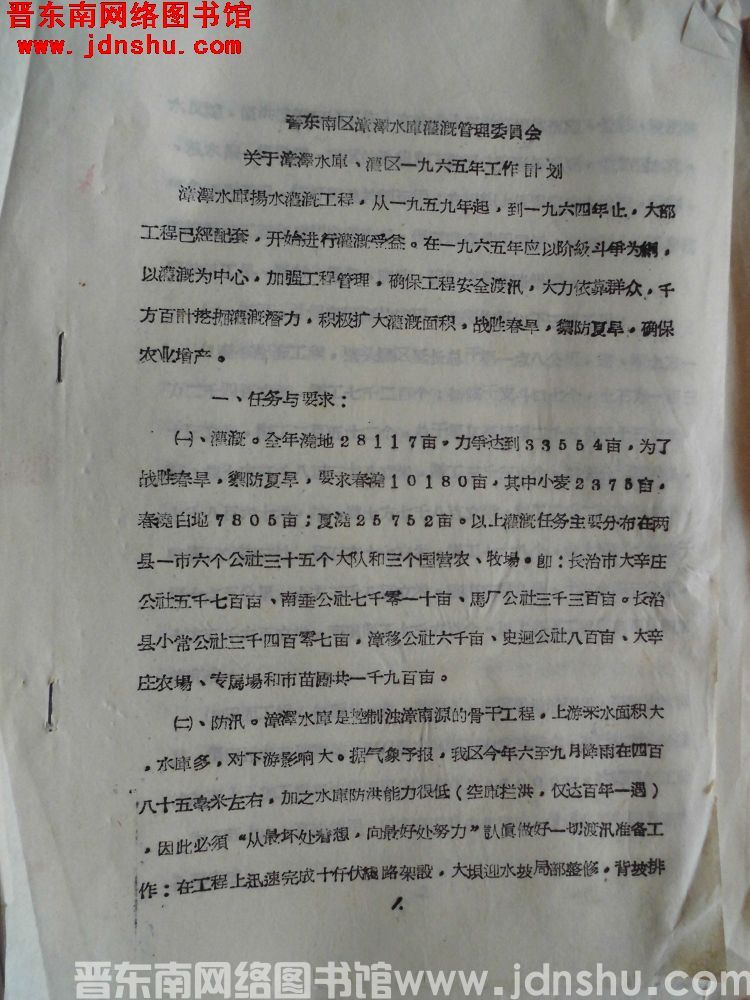 晋东南网络图书馆
www.jdnshu.com
晋东南区漳澤水庫灌溉管理委員会
关于漳澤水庫、灌区一九六五年工作計划
漳澤水庫揚水灌溉工程，从一九五九年起，到一九六四年止，大部
工程已經配套，开始进行灌溉受益。在一九六五年应以阶級斗爭为綱，
以灌溉为中心，加強工程管理，确保工程安全渡汛，大力依靠群众，千
方百計挖掘灌溉潛力，积极扩大灌溉面积，战胜春旱，禦防夏旱，确保
农业增产。
一、任务与要求：
㈠、灌溉。全年澆地28117亩。力爭达到33554亩，为了
战胜春旱，禦防夏旱，要求春澆10180亩，其中小麦2375亩，
春澆白地7805亩；夏澆25752亩。以上灌溉任务主要分布在两
县一市六个公社三十五个大队和三个国营农、牧場。卽：长治市大辛庄
公社五千七百亩、南垂公社七千零一十亩、馬厂公社三千三百亩。长治
县小常公社三千四百零七亩，漳移公社六千亩、史迴公社八百亩、大辛
庄农場、专属場和市苗圃共一千九百亩。
㈡、防汛。漳澤水庫是控制浊漳南源的骨干工程，上游来水面积大
，水庫多，对下游影响大。据气象予报，我区今年六至九月降雨在四百
八十五毫米左右，加之水庫防洪能力很低（空庫拦洪，仅达百年一遇）
，因此必須“从最坏处着想，向最好处努力”认眞做好一切渡汛准备工
作：在工程上迅速完成十仟伏綫路架設，大坝迎水坡局部整修，背坡排
1.
晋东南网络图书馆www.jdnshu.com